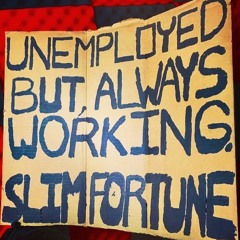 UNEMPLOYED
BUT, ALWAYS
WORKING.
SLIMFORTUNE